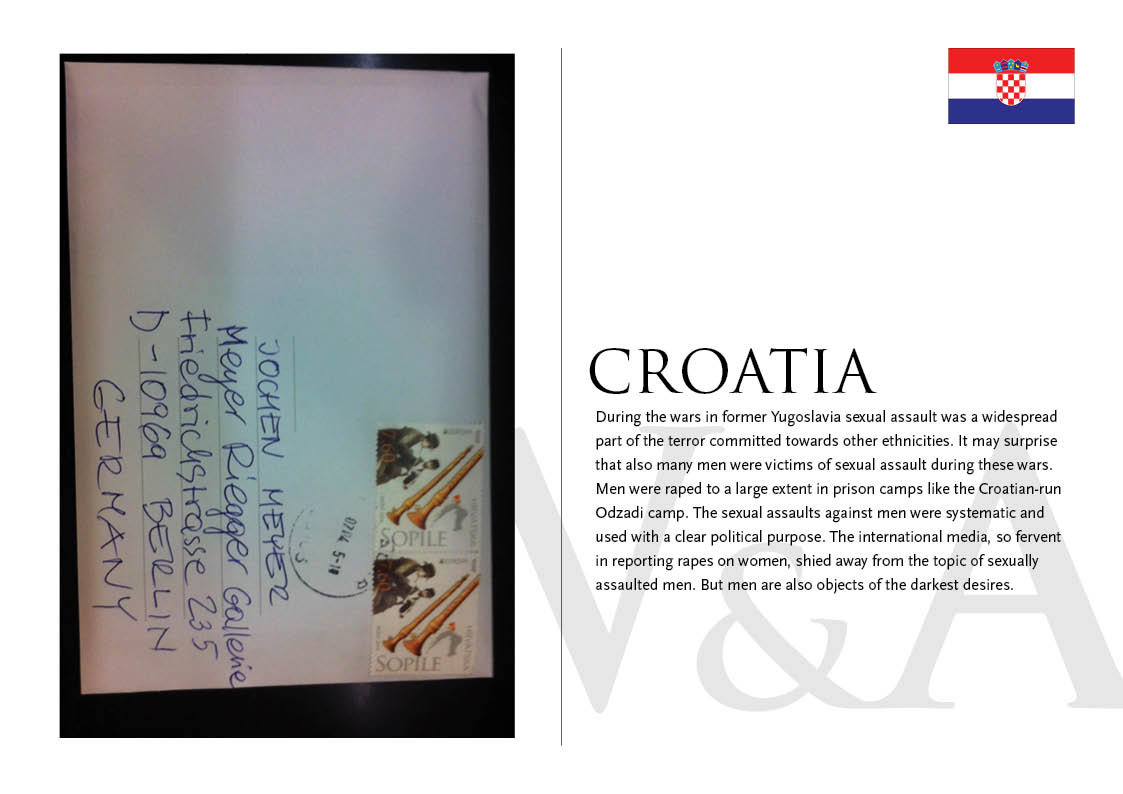 JOCHEN MEYER
Meyer Riegger Gallerie
Friedrichstrasse 235
D-10969 BERLIN
GERMANY
7.60
HRVATSKA
SOPILE
7.60
HRVATSKA
SOPILE
CROATIA
During the wars in former Yugoslavia sexual assault was a widespread
part of the terror committed towards other ethnicities. It may surprise
that also many men were victims of sexual assault during these wars.
Men were raped to a large extent in prison camps like the Croatian-run
Odzadi camp. The sexual assaults against men were systematic and
used with a clear political purpose. The international media, so fervent
in reporting rapes on women, shied away from the topic of sexually
assaulted men. But men are also objects of the darkest desires.
V&A